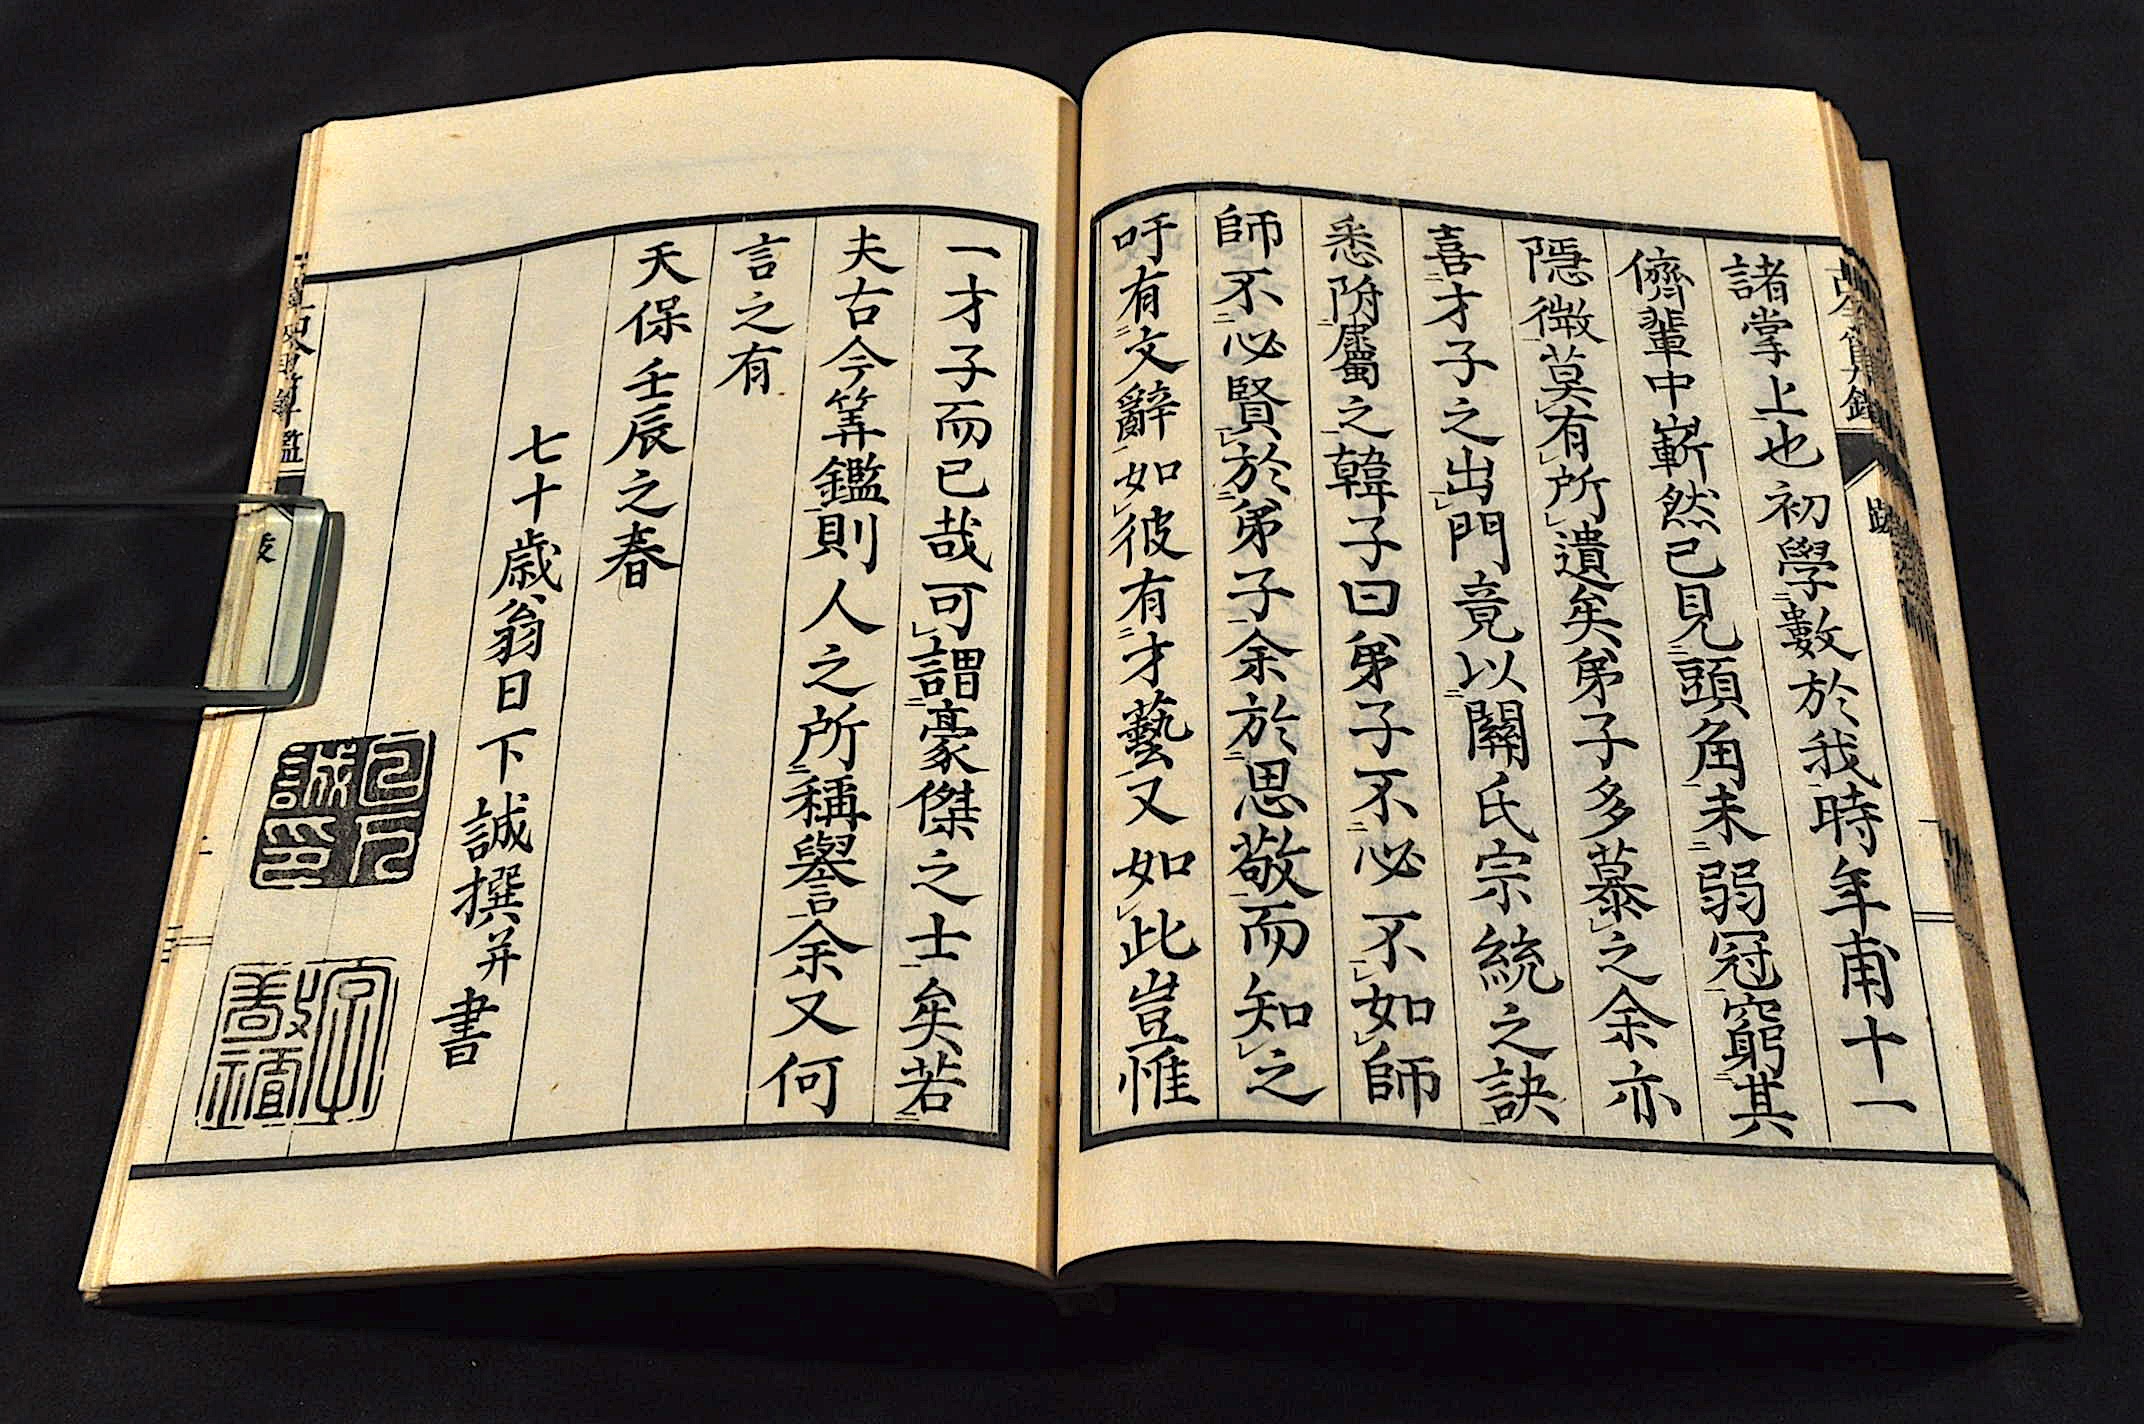 諸掌上也初學數於我時年甫十一
儕輩中嶄然已見頭角未弱冠窮其
隱微莫有所遺矣弟子多慕之余亦
喜才子之出門竟以關氏宗統之訣
悉附屬之韓子曰弟子不必不如師
師不必賢於弟子余於思敬而知之
吁有文辭如彼有才藝又如此豈惟
一才子而已哉可謂豪傑之士矣若
夫古今筭鑑則人之所稱譽余又何
言之有
天保壬辰之春
七十歳翁日下誠撰并書